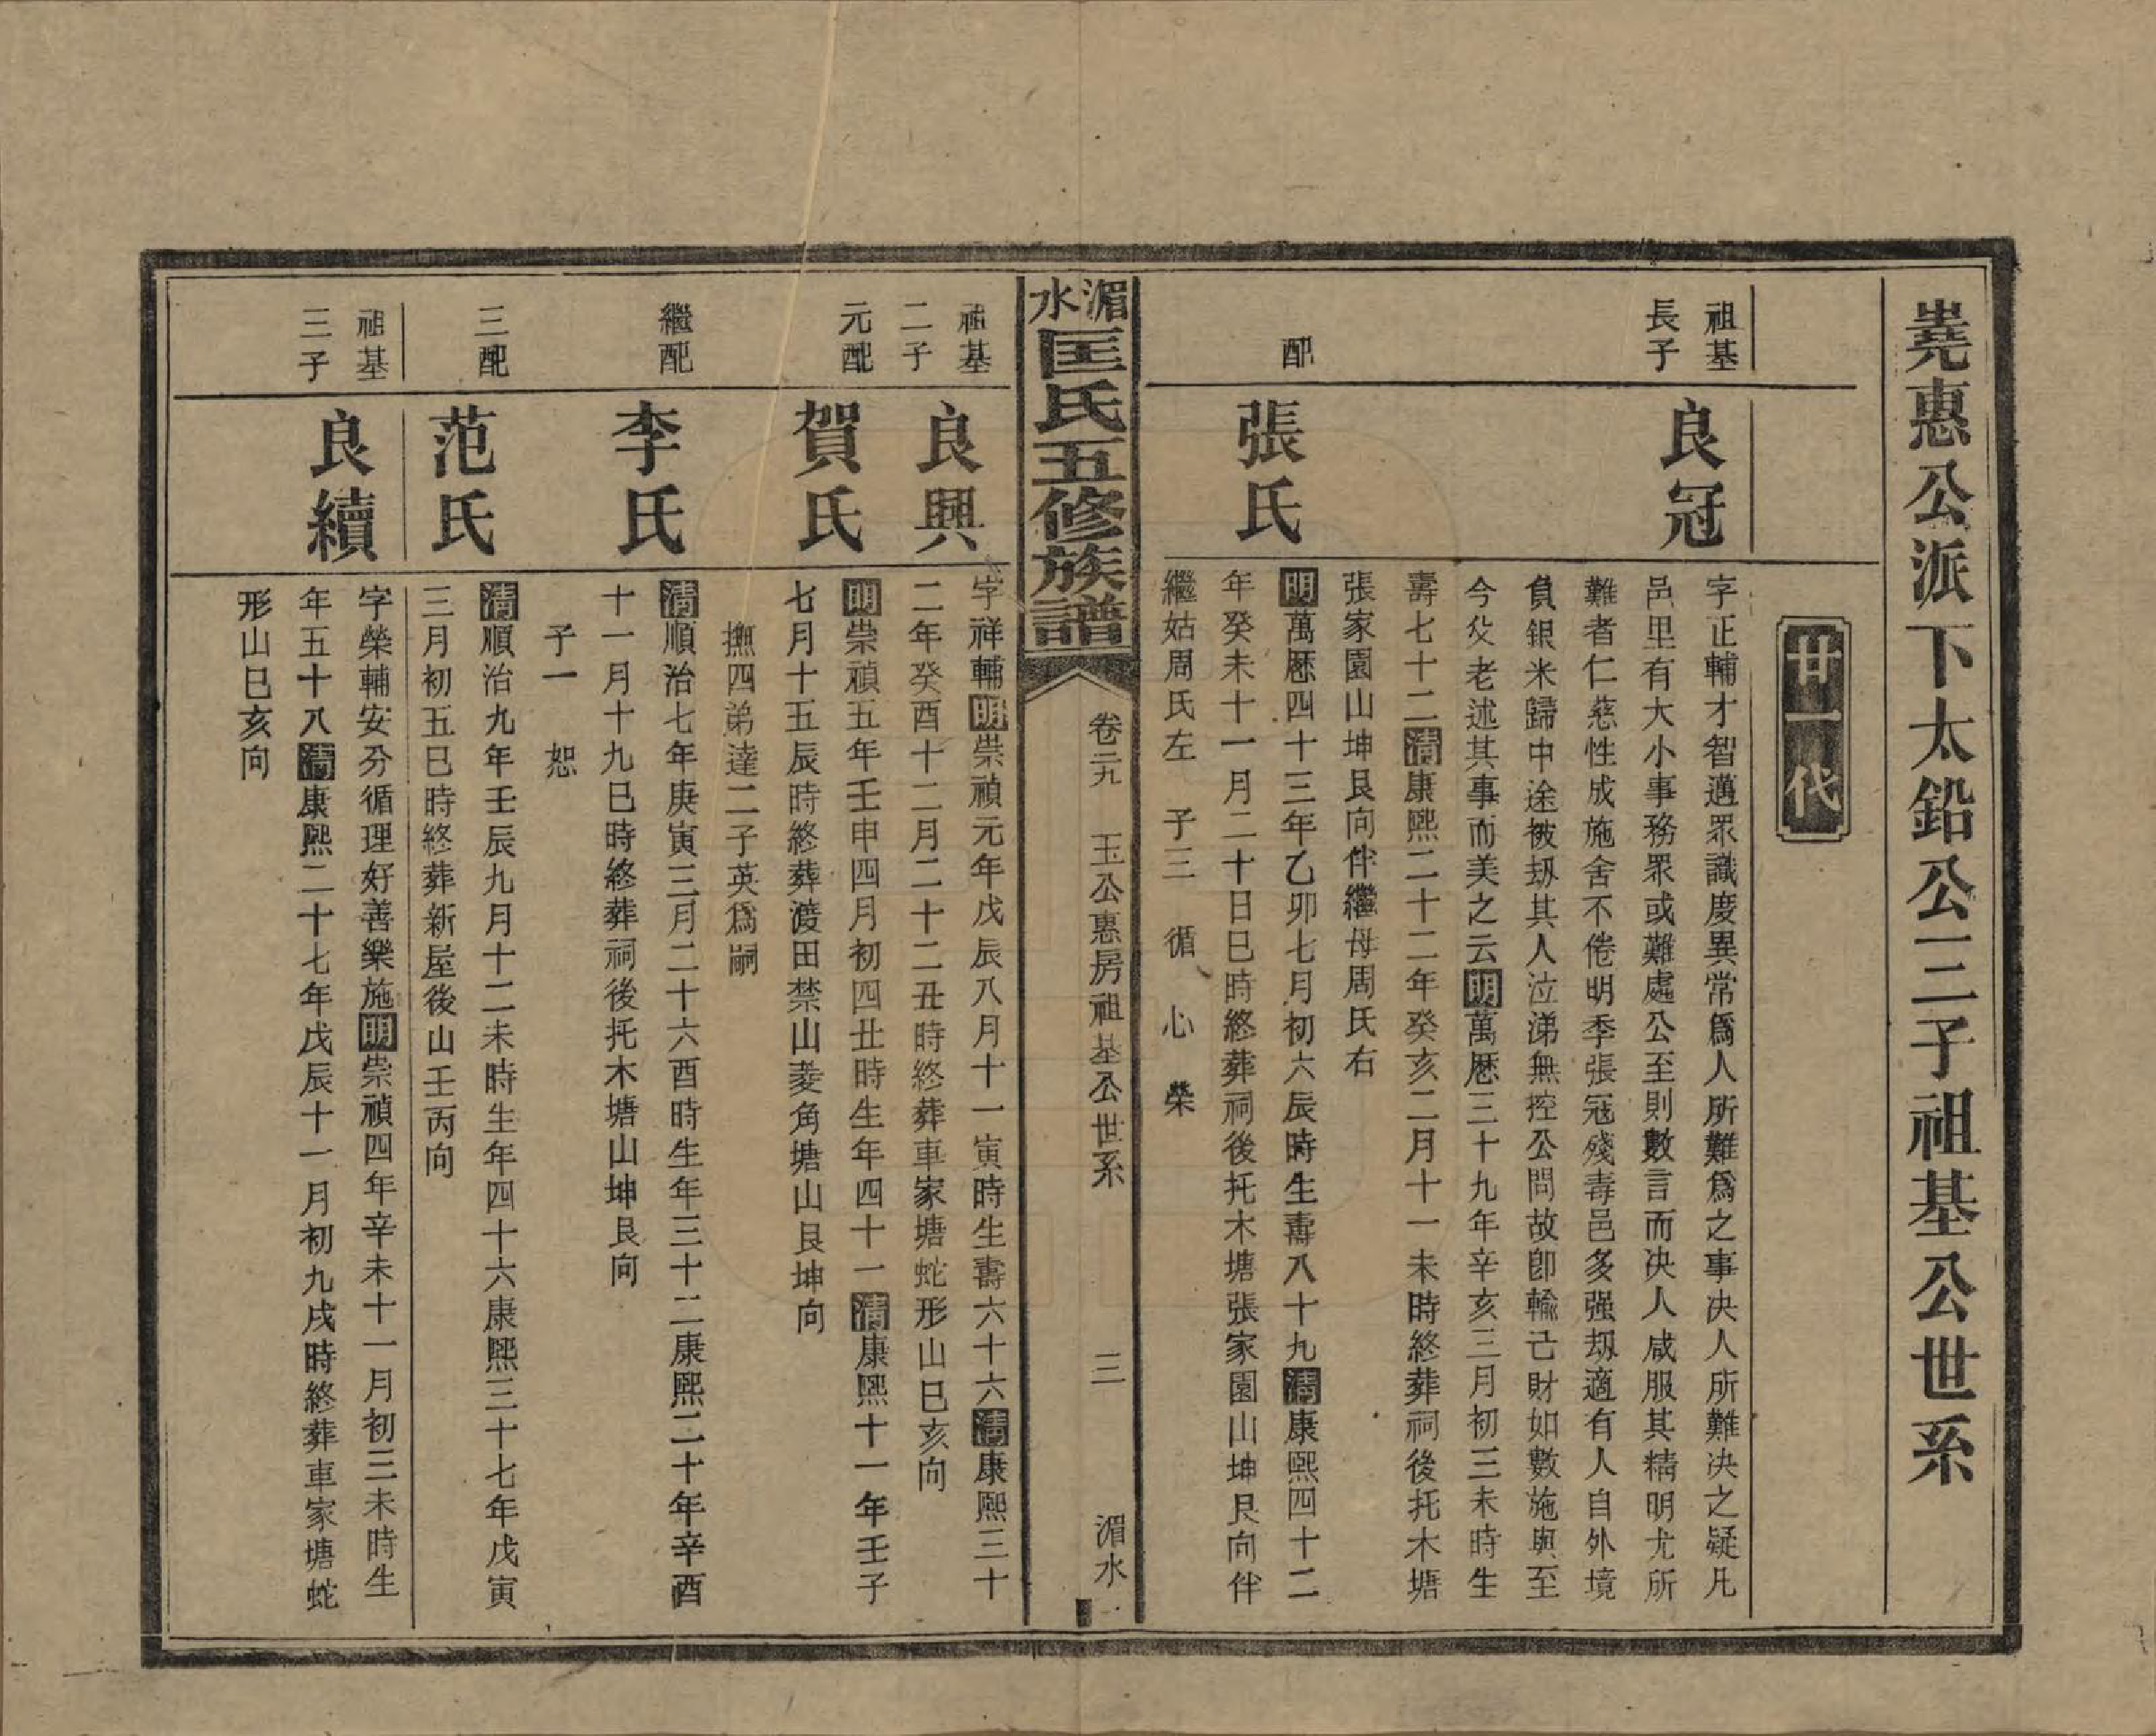 堯惠公派下太鉛公三子祖基公世系
廿一代
祖基
長子
良冠
字正輔才智邁眾識度異常爲人所難爲之事决人所難决之疑凡
邑里有大小事務眾或難處公至則數言而决人咸服其精明尤所
難者仁慈性成施舍不倦明季張冦殘毒邑多强刼適有人自外境
負銀米歸中途被刼其人泣涕無控公問故卽輸己財如數施與至
今父老述其事而美之云明萬厯三十九年辛亥三月初三未時生
壽七十二清康熙二十二年癸亥二月十一未時終葬祠後托木塘
張家園山坤艮向伴繼母周氏右
配
張氏
明萬厯四十三年乙卯七月初六辰時生壽八十九清康熙四十二
年癸未十一月二十日巳時終葬祠後托木塘張家園山坤艮向伴
繼姑周氏左 子三 循 心 榮
湄水
匡氏五修族譜
卷二九
玉公惠房祖基公世系
三
湄水
祖基
二子
良興
字祥輔明崇禎元年戊辰八月十一寅時生壽六十六清康熙三十
二年癸酉十二月二十二丑時終葬車家塘蛇形山巳亥向
元配
賀氏
明崇禎五年壬申四月初四丑時生年四十一清康熙十一年壬子
七月十五辰時終葬渡田禁山菱角塘山艮坤向
撫四弟達二子英爲嗣
繼配
李氏
清順治七年庚寅三月二十六酉時生年三十二康熙二十年辛酉
十一月十九巳時終葬祠後托木塘山坤艮向
子一 恕
三配
范氏
清順治九年壬辰九月十二未時生年四十六康熙三十七年戊寅
三月初五巳時終葬新屋後山壬丙向
祖基
三子
良續
字榮輔安分循理好善樂施明崇禎四年辛未十一月初三未時生
年五十八清康熙二十七年戊辰十一月初九戌時終葬車家塘蛇
形山巳亥向